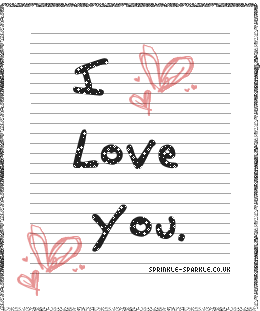 I
Love
You.
SPRINKLE-SPARKLE.CO.UK